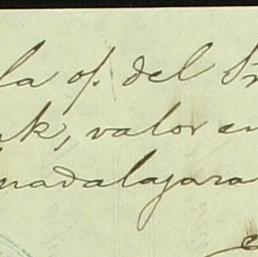 la of. del Sr
nk, valor en
uadalajara